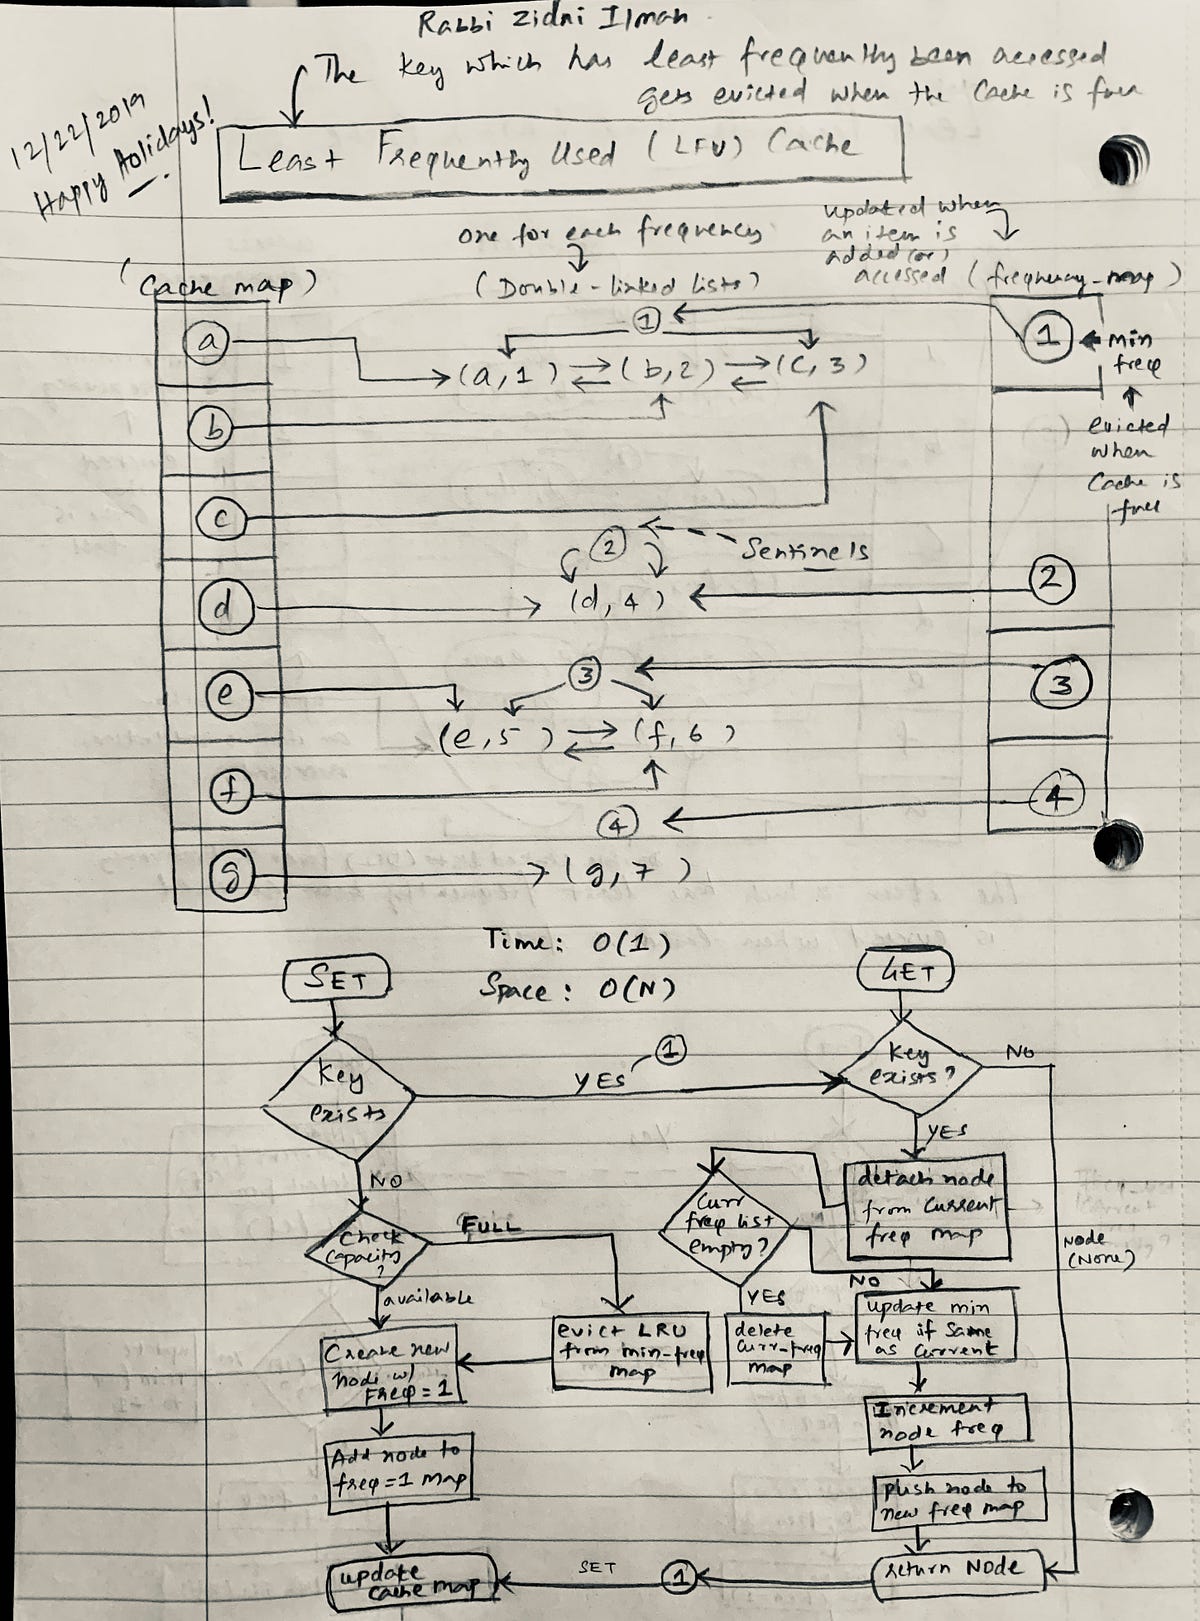 Rabbi Zidni Ilmah
The key which has least frequently been accessed
gets evicted when the Cache is full
12/22/2019
Happy Holidays!
Least Frequently Used (LFU) Cache
one for each frequency
updated when
an item is
added (or)
accessed
(Cache map)
(Double-linked lists)
(frequency-map)
a
1
1
min
freq
(a, 1) (b, 2) (c, 3)
b
evicted
when
Cache is
full
c
2
Sentinels
d
(d, 4)
2
e
3
3
(e, 5) (f, 6)
f
4
4
g
(g, 7)
Time: O(1)
Space: O(N)
SET
GET
Key
exists
YES
1
Key
exists?
NO
YES
NO
detach node
from current
freq map
Curr
freq list
empty?
Check
Capacity
?
FULL
Node
(None)
NO
YES
available
Create new
node w/
Freq = 1
evict LRU
from min-freq
map
delete
curr-freq
map
update min
freq if same
as current
Increment
node freq
Add node to
freq=1 map
push node to
new freq map
update
cache map
SET
1
return Node